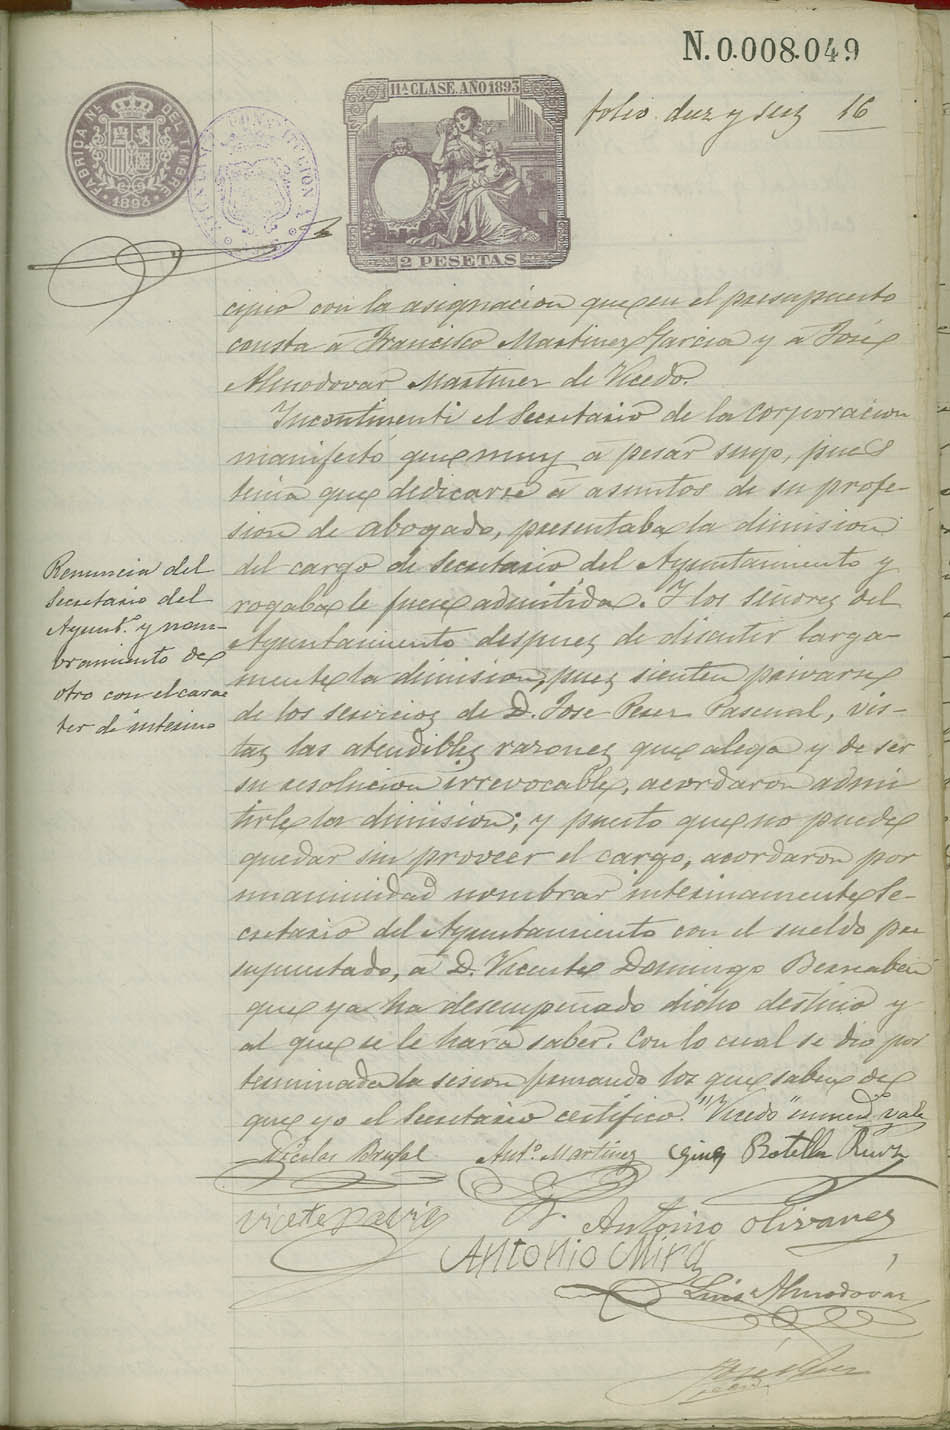 N.0.008.049
FABRICA NAL DEL TIMBRE
1893
11ª CLASE. AÑO 1893
2 PESETAS
folio diez y seis 16
cipio con la asignacion que en el presupuesto
consta á Francisco Martinez Garcia y á José
Almodovar Martinez de Vicedo.
Incontinenti el Secretario de la Corporacion
manifestó que muy á pesar suyo, pues
tenia que dedicarse á asuntos de su profe-
sion de abogado, presentaba la dimision
del cargo de Secretario del Ayuntamiento y
rogaba le fuese admitida. Y los señores del
Ayuntamiento despues de discutir larga-
mente la dimision, pues sienten privarse
de los servicios de D. Jose Perez Pascual, vis-
tas las atendibles razones que alega y de ser
su resolucion irrevocable, acordaron admi
tirle la dimision; y puesto que no puede
quedar sin proveer el cargo, acordaron por
unanimidad nombrar interinamente Se-
cretario del Ayuntamiento con el sueldo pre
supuestado, á D. Vicente Domingo Bernabeu
que ya ha desempeñado dicho destino y
al que se le hará saber. Con lo cual se dió por
terminada la sesion firmando los que saben de
que yo el Secretario certifico. "Vicedo" enmend. vale
Renuncia del
Secretario del
Ayunt.º y nom-
bramiento de
otro con el carac
ter de interino
Nicolas Brufal Ant.º Martinez Gines Botella Ruiz
Antonio Olivares
Antonio Mira
Luis Almodovar
José Perez